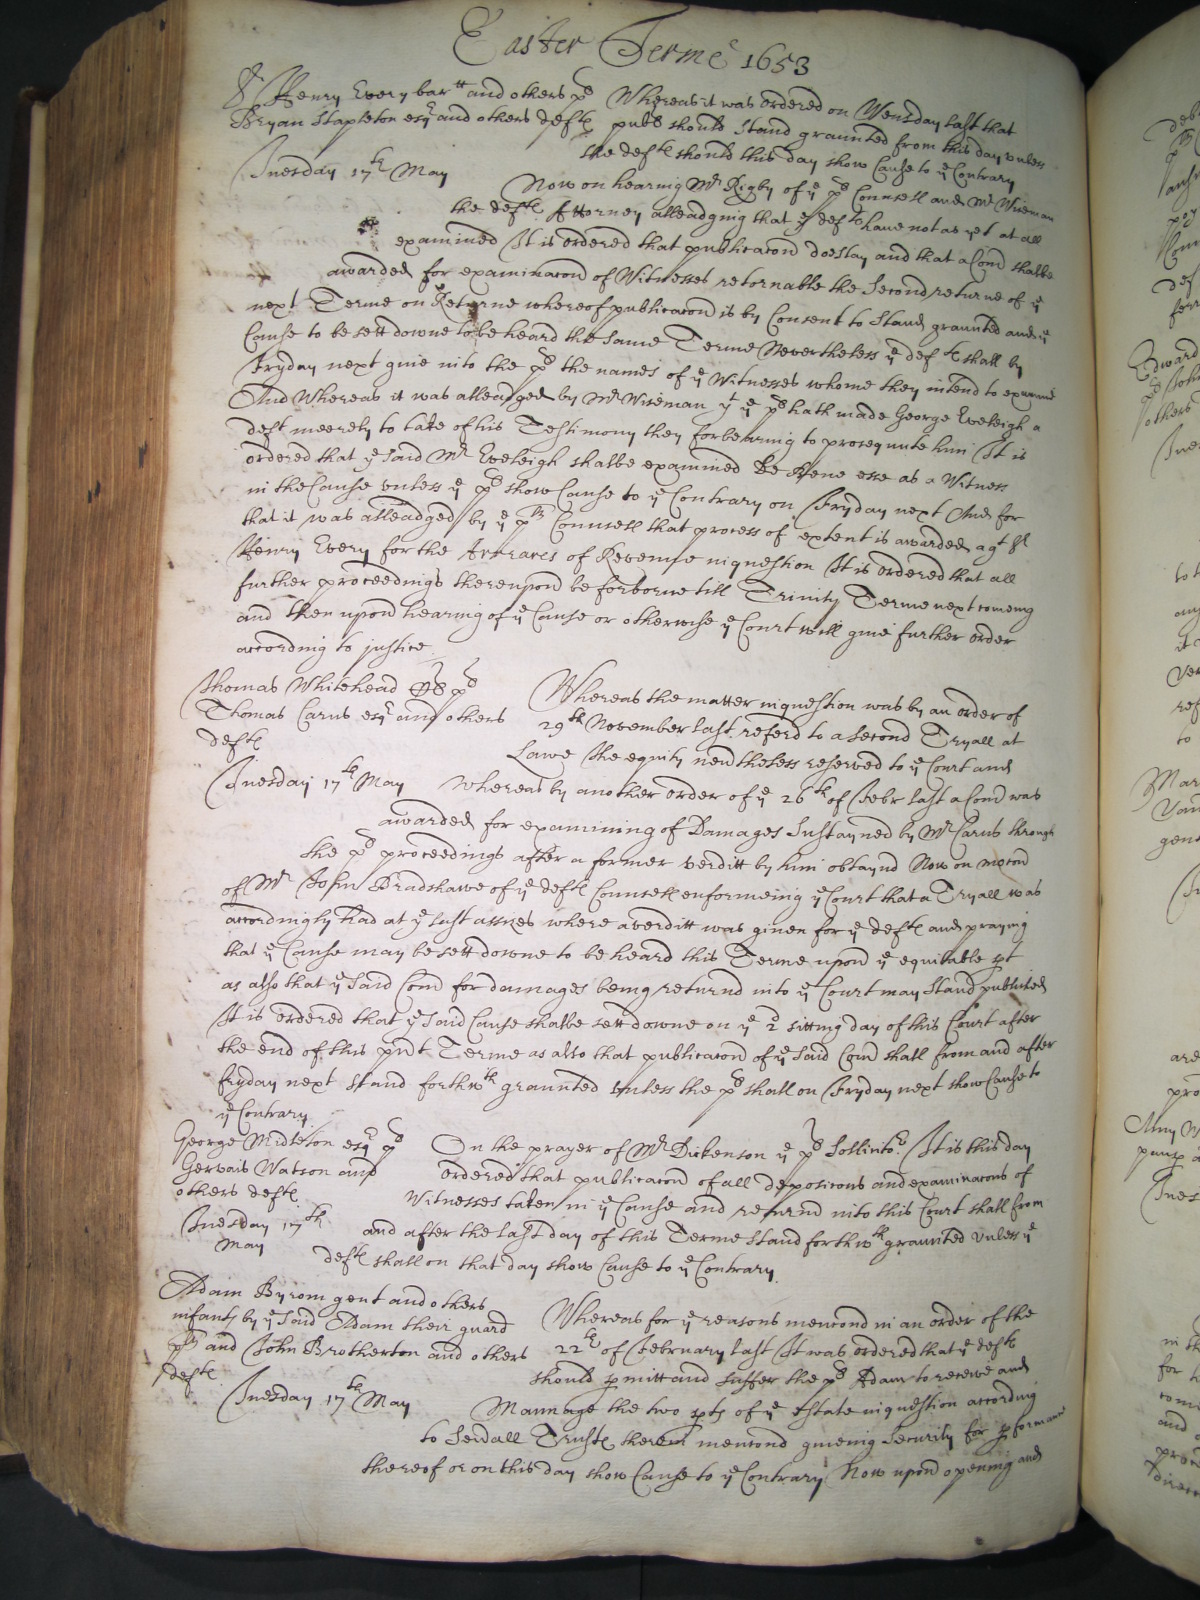 Easter Terme 1653
Sr Henry Every bartt and others pts
Bryan Stapleton esqr and others defts
Tuesday 17th May
Whereas it was ordered on Wensday last that
publ should Stand graunted from this day unless
the defts should this day show Cause to ye Contrary
Now on hearing Mr Rigby of ye pts Councell and Mr Wiseman
the defts Attorney alleadging that ye defts have not as yet at all
examined It is ordered that publicacon doe stay and that a Comd shalbe
awarded for examinacon of Witnesses retornable the Second returne of ye
next Terme on Returne whereof publicacon is by Consent to Stand graunted and ye
Cause to be sett downe to be heard the same Terme Nevertheless ye defts shall by
Fryday next give into the pts the names of ye Witnesses whome they intend to examine
And Whereas it was alleadged by Mr Wiseman yt ye pts hath made George Eveleigh a
deft meerely to take of his Testimony they forbearing to prosequute him It is
ordered that ye said Mr Eveleigh shalbe examined De Bene esse as a Witness
in the Cause unless ye pts show Cause to ye Contrary on Fryday next And for
that it was alleadged by ye pts Councell that process of extent is awarded agt Sr
Henry Every for the Arreares of Revenue in question It is ordered that all
further proceedings thereupon be forborne till Trinity Terme next comeing
and then upon hearing of ye Cause or otherwise ye Court will give further order
according to justice
Thomas Whitehead pts
Thomas Carus esqr and others
defts
Tuesday 17th May
Whereas the matter in question was by an order of
29th November last referd to a second Tryall at
Lawe the equity nevertheless reserved to ye Court and
Whereas by another order of ye 26th of Febr last a Comd was
awarded for examining of Damages Sustayned by Mr Carus through
the pts proceedings after a former verditt by him obtaynd Now on mocon
of Mr John Bradshawe of ye defts Councell enformeing ye Court that a Tryall was
accordingly had at ye last assizes where a verditt was given for ye defts and praying
that ye Cause may be sett downe to be heard this Terme upon ye equitable pt
as also that ye said Comd for damages being returnd into ye Court may Stand published
It is ordered that ye said Cause shalbe sett downe on ye 2d sitting day of this Court after
the end of this pnt Terme as also that publicacon of ye said Comd shall from and after
fryday next stand forthwth graunted unless the pts shall on Fryday next show Cause to
ye Contrary
George Midleton esqr pts
Gervais Watson and
others defts
Tuesday 17th
May
On the prayer of Mr Dickenson ye pts Sollicitor It is this day
ordered that publicacon of all deposicons and examinacons of
Witnesses taken in ye Cause and returnd into this Court shall from
and after the last day of this Terme stand forthwth graunted Unless ye
defts shall on that day show Cause to ye Contrary
Adam Byrom gent and others
infants by ye said Adam their guard
pts and John Brotherton and others
defts
Tuesday 17th May
Whereas for ye reasons mencond in an order of the
22th of February last It was ordered that ye defts
should pmitt and suffer the pts Adam to receive and
Mannage the two pts of ye Estate in question according
to Seidall Trusts therein mencond giveing Security for pformance
thereof or on this day show Cause to ye Contrary Now upon opening and